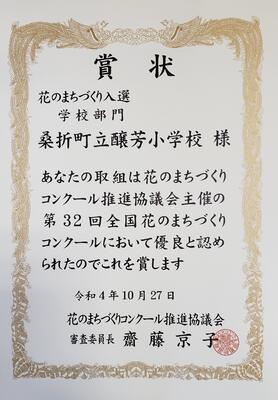 賞状
花のまちづくり入選
学校部門
桑折町立醸芳小学校 様
あなたの取組は花のまちづくり
コンクール推進協議会主催の
第32回全国花のまちづくり
コンクールにおいて優良と認め
られたのでこれを賞します
令和4年10月27日
花のまちづくりコンクール推進協議会
審査委員長 齋藤京子